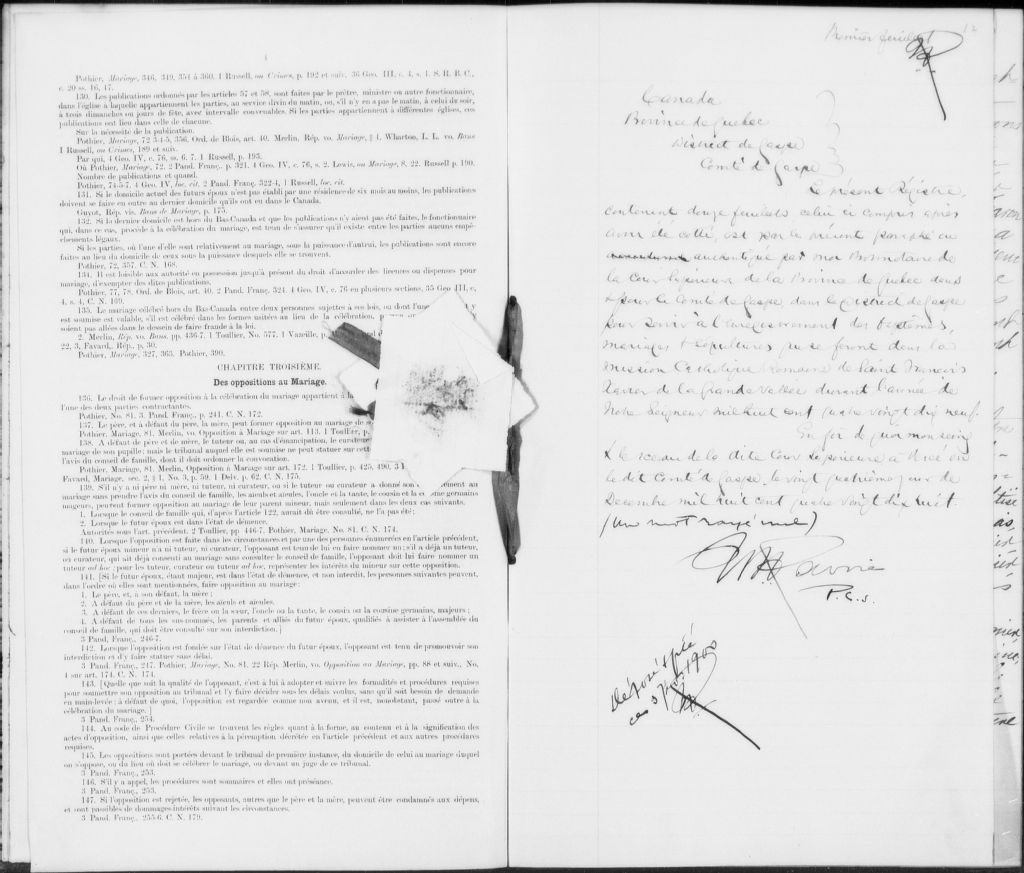 4
Pothier, Mariage, 346, 349, 354 à 360. 1 Russell, on Crimes, p. 192 et suiv. 36 Geo. III, c. 4, s. 1. S. R. B. C.,
c. 20 ss. 16, 17.
130. Les publications ordonnées par les articles 57 et 58, sont faites par le prêtre, ministre ou autre fonctionnaire,
dans l'église à laquelle appartiennent les parties, au service divin du matin, ou, s'il n'y en a pas le matin, à celui du soir,
à trois dimanches ou jours de fête, avec intervalle convenables. Si les parties appartiennent à différentes églises, ces
publications ont lieu dans celle de chacune.
Sur la nécessité de la publication.
Pothier, Mariage, 72 3-4-5, 356. Ord. de Blois, art. 40. Merlin, Rép. vo. Mariage, § 4. Wharton, L. L. vo. Bans
1 Russell, on Crimes, 189 et suiv.
Par qui, 4 Geo. IV, c. 76, ss. 6. 7. 1 Russell, p. 193.
Où Pothier, Mariage, 72. 2 Pand. Franç. p. 321. 4 Geo. IV, c. 76, s. 2. Lewis, on Mariage, 8. 22. Russell p. 190.
Nombre de publications et quand.
Pothier, 74-5-7. 4 Geo. IV, loc. cit. 2 Pand. Franç. 322-4, 1 Russell, loc. cit.
131. Si le domicile actuel des futurs époux n'est pas établi par une résidence de six mois au moins, les publications
doivent se faire en outre au dernier domicile qu'ils ont eu dans le Canada.
Guyot, Rép. vis. Bans de Mariage, p. 175.
132. Si la dernier domicile est hors du Bas-Canada et que les publications n'y aient pas été faites, le fonctionnaire
qui, dans ce cas, procède à la célébration du mariage, est tenu de s'assurer qu'il existe entre les parties aucuns empê-
chements légaux.
Si les parties, où l'une d'elle sont relativement au mariage, sous la puissance d'autrui, les publications sont encore
faites au lieu du domicile de ceux sous la puissance desquels elle se trouvent.
Pothier, 72, 357. C. N. 168.
134. Il est loisible aux autorité en possession jusqu'à présent du droit d'accorder des licences ou dispenses pour
mariage, d'exempter des dites publications.
Pothier, 77, 78. Ord. de Blois, art. 40. 2 Pand. Franç. 324. 4 Geo. IV, c. 76 en plusieurs sections, 35 Geo III, c.
4, s. 4, C. N. 169.
135. Le mariage célébré hors du Bas-Canada entre deux personnes sujettes à ses lois, ou dont l'une y
est soumise est valable, s'il est célébré dans les formes usitées au lieu de la célébration,
soient pas allées dans le dessein de faire fraude à la loi.
2. Merlin, Rép. vo. Bans, pp. 436-7. 1 Toullier, No. 577, 1 Vazeille, p.
22, 3, Favard, Rép., p, 30.
Pothier, Mariage, 327, 363. Pothier, 390.
CHAPITRE TROISIÈME.
Des oppositions au Mariage.
136. Le droit de former opposition à la célébration du mariage appartient à la
l'une des deux parties contractantes.
Pothier, No. 81. 3. Pand. Franç., p. 241. C. N. 172.
137. Le père, et à défaut du père, la mère, peut former opposition au mariage de
Pothier, Mariage, 81. Merlin, vo. Opposition à Mariage sur art. 113. 1 Toullier, p.
138. A défaut de père et de mère, le tuteur ou, au cas d'émancipation, le curateur
mariage de son pupille; mais le tribunal auquel elle est soumise ne peut statuer sur cette
l'avis du conseil de famille, dont il doit ordonner la convocation.
Pothier, Mariage, 81. Merlin, Opposition à Mariage sur art. 172. 1 Toullier, p. 425, 490, 3
Favard, Mariage, sec. 2, § 1, No. 3, p. 59. 1 Delv. p. 62. C. N. 175.
139. S'il n'y a ni père ni mère, ni tuteur, ni curateur, ou si le tuteur ou curateur a donné son
mariage sans prendre l'avis du conseil de famille, les aïeuls et aïeules, l'oncle et la tante, le cousin et la cousine germains
majeurs, peuvent former opposition au mariage de leur parent mineur, mais seulement dans les deux cas suivants.
1. Lorsque le conseil de famille qui, d'après l'article 122, aurait dû être consulté, ne l'a pas été;
2. Lorsque le futur époux est dans l'état de démence.
Autorités sous l'art. précédent. 2 Toullier, pp 446-7. Pothier, Mariage, No. 81. C. N. 174.
140. Lorsque l'opposition est faite dans les circonstances et par une des personnes énumérées en l'article précédent,
si le futur époux mineur n'a ni tuteur, ni curateur, l'opposant est tenu de lui en faire nommer un; s'il a déjà un tuteur,
ou curateur, qui ait déjà consenti au mariage sans consulter le conseil de famille, l'opposant doit lui faire nommer un
tuteur ad hoc; pour les tuteur, curateur ou tuteur ad hoc, représenter les intérêts du mineur sur cette opposition.
141. [Si le futur époux, étant majeur, est dans l'état de démence, et non interdit, les personnes suivantes peuvent,
dans l'ordre où elles sont mentionnées, faire opposition au mariage:
1. Le père, et, à son défaut, la mère;
2. A défaut du père et de la mère, les aïeuls et aïeules.
3. A défaut de ces derniers, le frère ou la sœur, l'oncle ou la tante, le cousin ou la cousine germains, majeurs;
4. A défaut de tous les sus-nommés, les parents et alliés du futur époux, qualifiés à assister à l'assemblée du
conseil de famille, qui doit être consulté sur son interdiction.]
3 Pand. Franç., 246-7.
142. Lorsque l'opposition est fondée sur l'état de démence du futur époux, l'opposant est tenu de promouvoir son
interdiction et d'y faire statuer sans délai.
3 Pand. Franç., 247. Pothier, Mariage, No. 81. 22 Rép. Merlin, vo. Opposition au Mariage, pp. 88 et suiv., No.
4 sur art. 174. C. N. 174.
143. [Quelque que soit la qualité de l'opposant, c'est à lui à adopter et suivre les formalités et procédures requises
pour soumettre son opposition au tribunal et l'y faire décider sous les délais voulus, sans qu'il soit besoin de demande
en main-levée; à défaut de quoi, l'opposition est regardée comme non avenu, et il est, nonobstant, passé outre à la
célébration du mariage.]
3 Pand. Franç., 254.
144. Au code de Procédure Civile se trouvent les règles quant à la forme, au contenu et à la signification des
actes d'opposition, ainsi que celles relatives à la péremption décrétée en l'article précédent et aux autres procédures
requises.
145. Les oppositions sont portées devant le tribunal de première instance, du domicile de celui au mariage duquel
on s'oppose, ou du lieu où doit se célébrer le mariage, ou devant un juge de ce tribunal.
3 Pand. Franç., 253.
146. S'il y a appel, les procédures sont sommaires et elles ont préséance.
3 Pand. Franç., 253.
147. Si l'opposition est rejetée, les opposants, autres que le père et la mère, peuvent être condamnés aux dépens,
et sont passibles de dommages-intérêts suivant les circonstances.
3 Pand. Franç., 255-6. C. N. 179.
Premier feuillet
12
Canada
Province de Quebec
District de Gaspé
Comté de Gaspé
Le présent Régistre,
contenant douze feuillets celui ci compris après
avoir été cotté, est par le présent paraphé ou
authentiqué par moi Protonotaire de
la Cour Supérieure de la Province de Quebec dans
& pour le Comté de Gaspé dans le District de Gaspé
pour servir à l'enregistrement des baptêmes,
mariages & sépultures qui se feront dans la
mission Catholique Romaine de Saint François
Xavier de la Grande Vallée durant l'année de
Notre Seigneur mil huit cent quatre vingt dix neuf.
En foi de quoi mon seing
& le sceau de la dite Cour Supérieure à Percé dans
le dit Comté de Gaspé le vingt quatrième jour de
Decembre mil huit cent quatre vingt dix huit
(un mot rayé nul)
P.C.S.
Déposé & plé
ce 3 1900